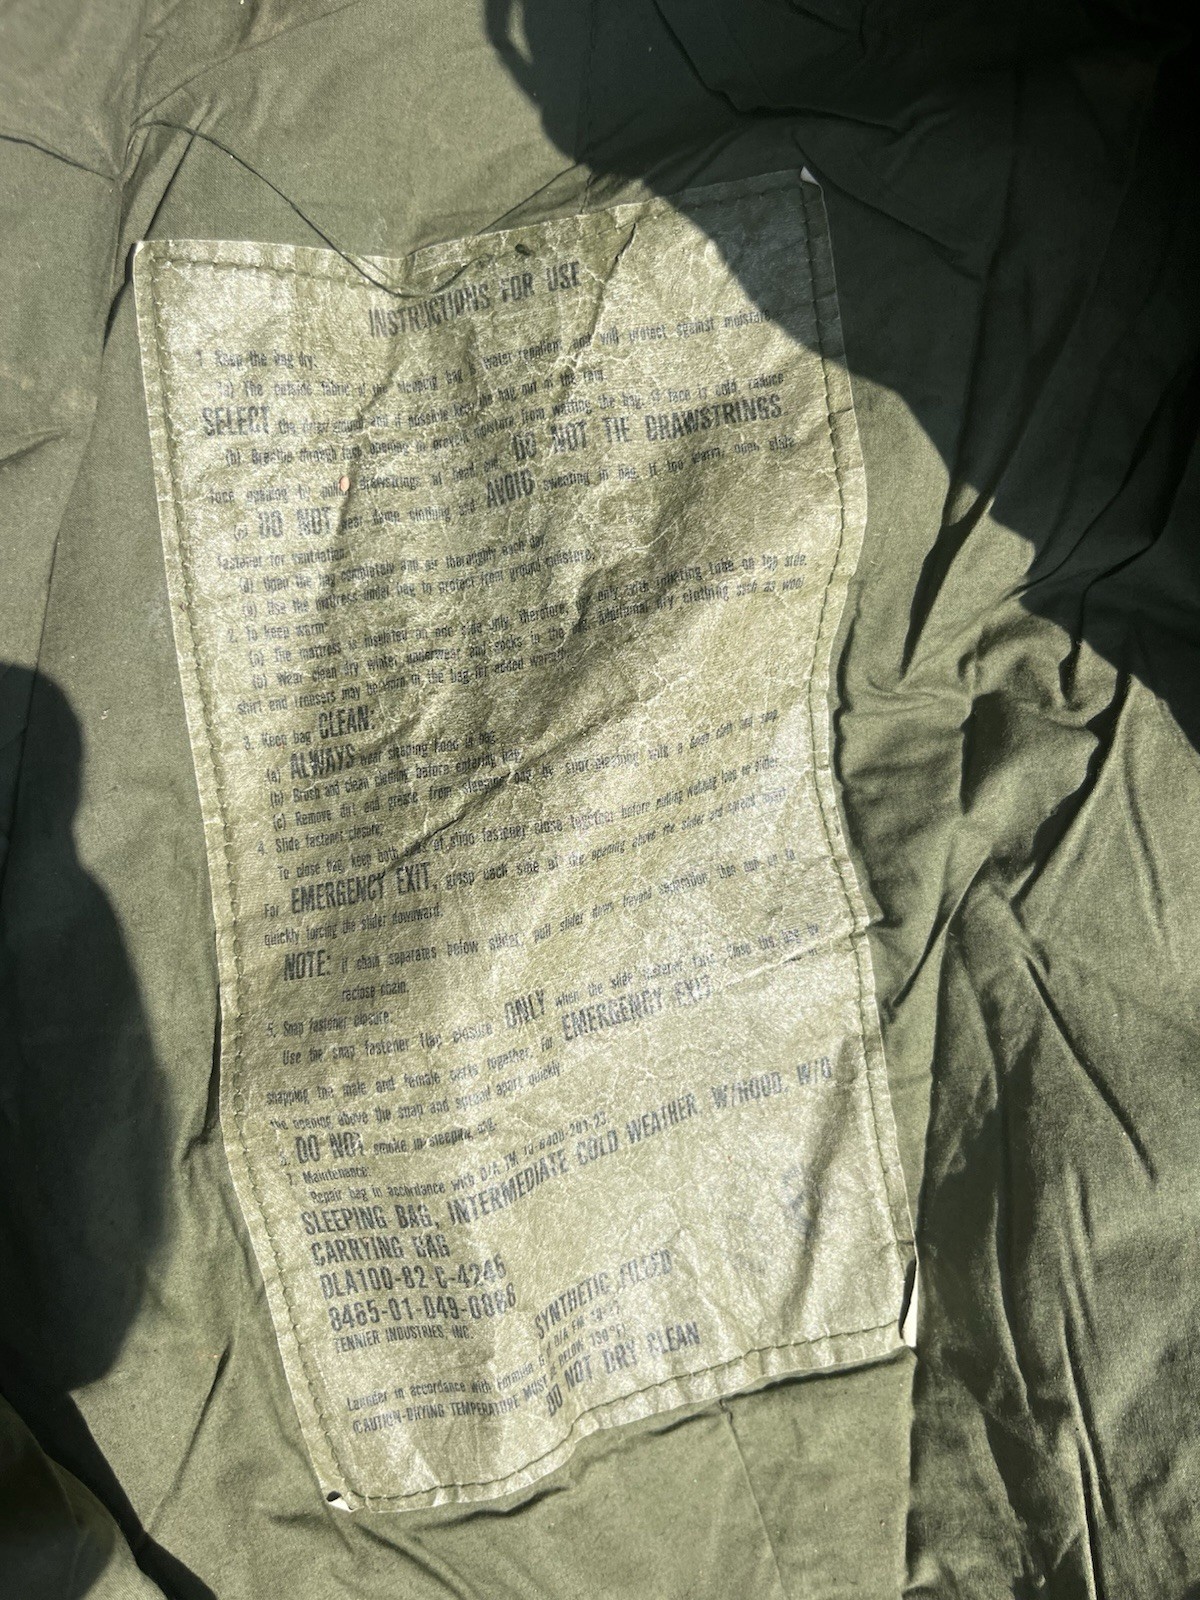 INSTRUCTIONS FOR USE
1. Keep the bag dry:
(a) The outside fabric of the sleeping bag is water repellent and will protect against moisture.
SELECT the dried ground and if possible keep the bag out of the rain.
(b) Breathe through face opening to prevent moisture from wetting the bag. If face is cold reduce
face opening by drawstrings at head end. DO NOT TIE DRAWSTRINGS.
(c) DO NOT wear damp clothing and AVOID sweating in bag. If too warm, open slide
fastener for ventilation.
(d) Open the bag completely and air thoroughly each day.
(e) Use the mattress under bag to protect from ground moisture.
2. To keep warm:
(a) The mattress is insulated on one side only. Therefore, only with inflating tube on top side.
(b) Wear clean dry winter underwear and socks in the bag. Additional dry clothing such as wool
shirt and trousers may be worn in the bag for added warmth.
3. Keep bag CLEAN:
(a) ALWAYS wear sleeping hood in bag.
(b) Brush and clean clothing before entering bag.
(c) Remove dirt and grease from sleeping bag by with a damp cloth and soap.
4. Slide fastener closure:
To close bag, keep both of slide fastener close together before pulling webbing loop to slider.
For EMERGENCY EXIT, grasp each side of the opening above the slider and spread apart
quickly forcing the slider downward.
NOTE: If chain separates below slider, pull slider down beyond separation, then pull up to
reclose chain.
5. Snap fastener closure:
Use the snap fastener flap closure ONLY when the slide fastener fails. Close the bag by
snapping the male and female parts together. For EMERGENCY EXIT
the opening above the snap and spread apart quickly.
DO NOT smoke in sleeping bag.
7. Maintenance:
Repair bag in accordance with D/A TM 10-8400-201-23.
SLEEPING BAG, INTERMEDIATE COLD WEATHER, W/HOOD, W/O
CARRYING BAG
DLA100-82-C-4245
8465-01-049-0886
TENNIER INDUSTRIES, INC.
SYNTHETIC FILLED
Launder in accordance with Formula D/A FM
(CAUTION-DRYING TEMPERATURE MUST BE BELOW 130°F)
DO NOT DRY CLEAN